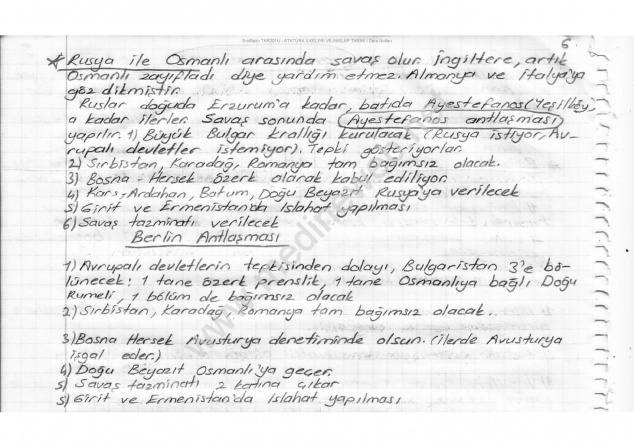 6
* Rusya ile Osmanlı arasında savaş olur. İngiltere, artık
Osmanlı zayıfladı diye yardım etmez. Almanya ve İtalya'ya
göz dikmiştir.
Ruslar doğuda Erzurum'a kadar, batıda Ayestefanos (Yeşilköy)
a kadar ilerler. Savaş sonunda (Ayestefanos antlaşması)
yapılır. 1) Büyük Bulgar krallığı kurulacak (Rusya istiyor, Av-
rupalı devletler istemiyor). Tepki gösteriyorlar.
2) Sırbistan, Karadağ, Romanya tam bağımsız olacak.
3) Bosna-Hersek özerk olarak kabul ediliyor.
4) Kars-Ardahan, Batum, Doğu Beyazıt Rusya'ya verilecek
5) Girit ve Ermenistan'da Islahat yapılması
6) Savaş tazminatı verilecek
Berlin Antlaşması
1) Avrupalı devletlerin tepkisinden dolayı, Bulgaristan 3'e bö-
lünecek: 1 tane özerk prenslik, 1 tane Osmanlıya bağlı Doğu
Rumeli, 1 bölüm de bağımsız olacak
2) Sırbistan, Karadağ, Romanya tam bağımsız olacak.
3) Bosna Hersek Avusturya denetiminde olsun. (ilerde Avusturya
işgal eder.)
4) Doğu Beyazıt Osmanlı'ya geçer.
5) Savaş tazminatı 2 katına çıkar
5) Girit ve Ermenistan'da Islahat yapılması